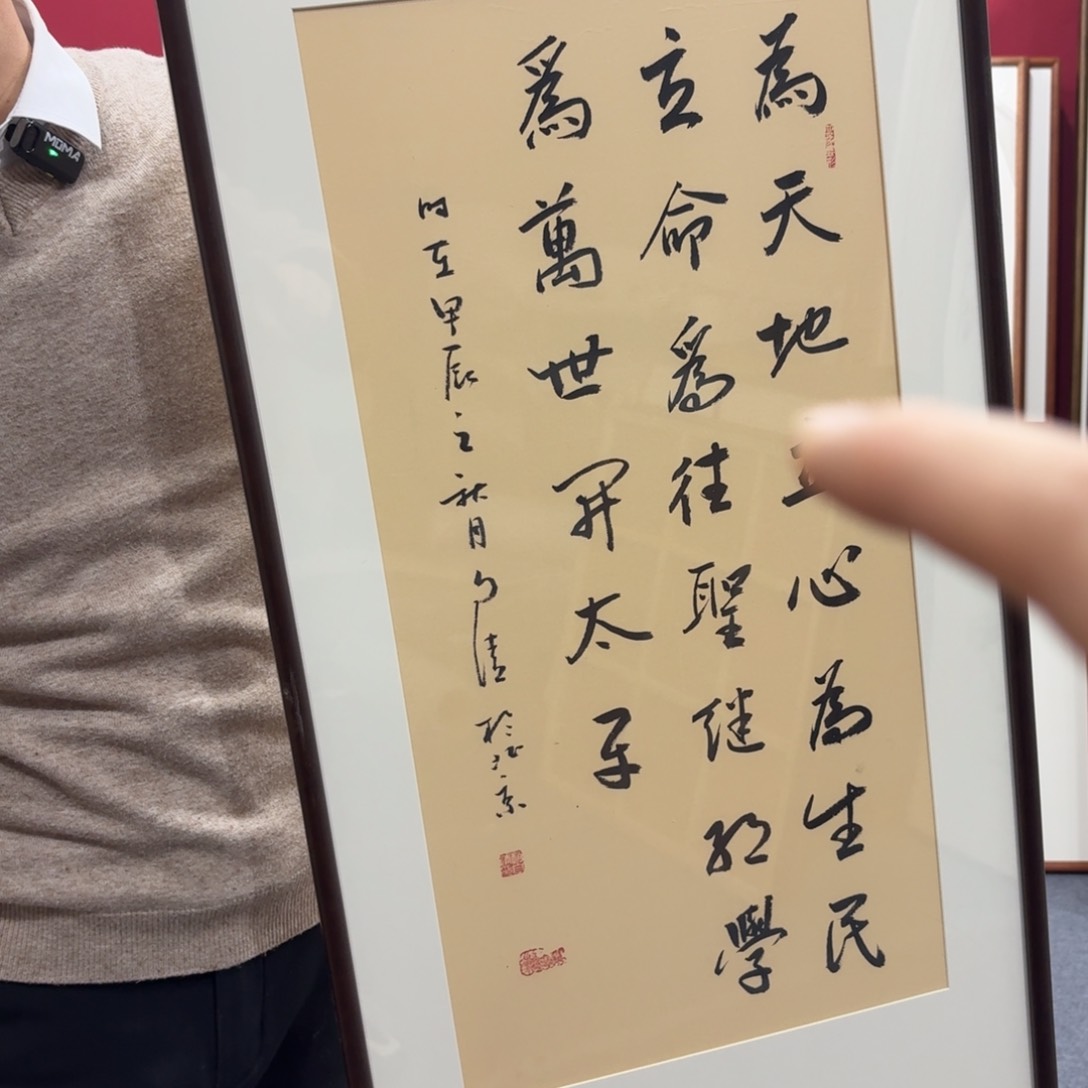 為天地立心為生民
立命為往聖继绝學
為萬世開太平
時在甲辰之秋月
於北京
MOMA